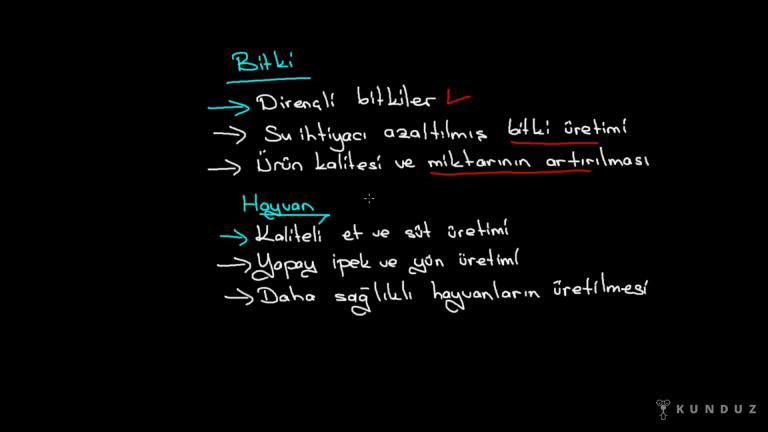 Bitki
→ Dirençli bitkiler
→ Su ihtiyacı azaltılmış bitki üretimi
→ Ürün kalitesi ve miktarının artırılması
Hayvan
→ Kaliteli et ve süt üretimi
→ Yapay ipek ve yün üretimi
→ Daha sağlıklı hayvanların üretilmesi
KUNDUZ